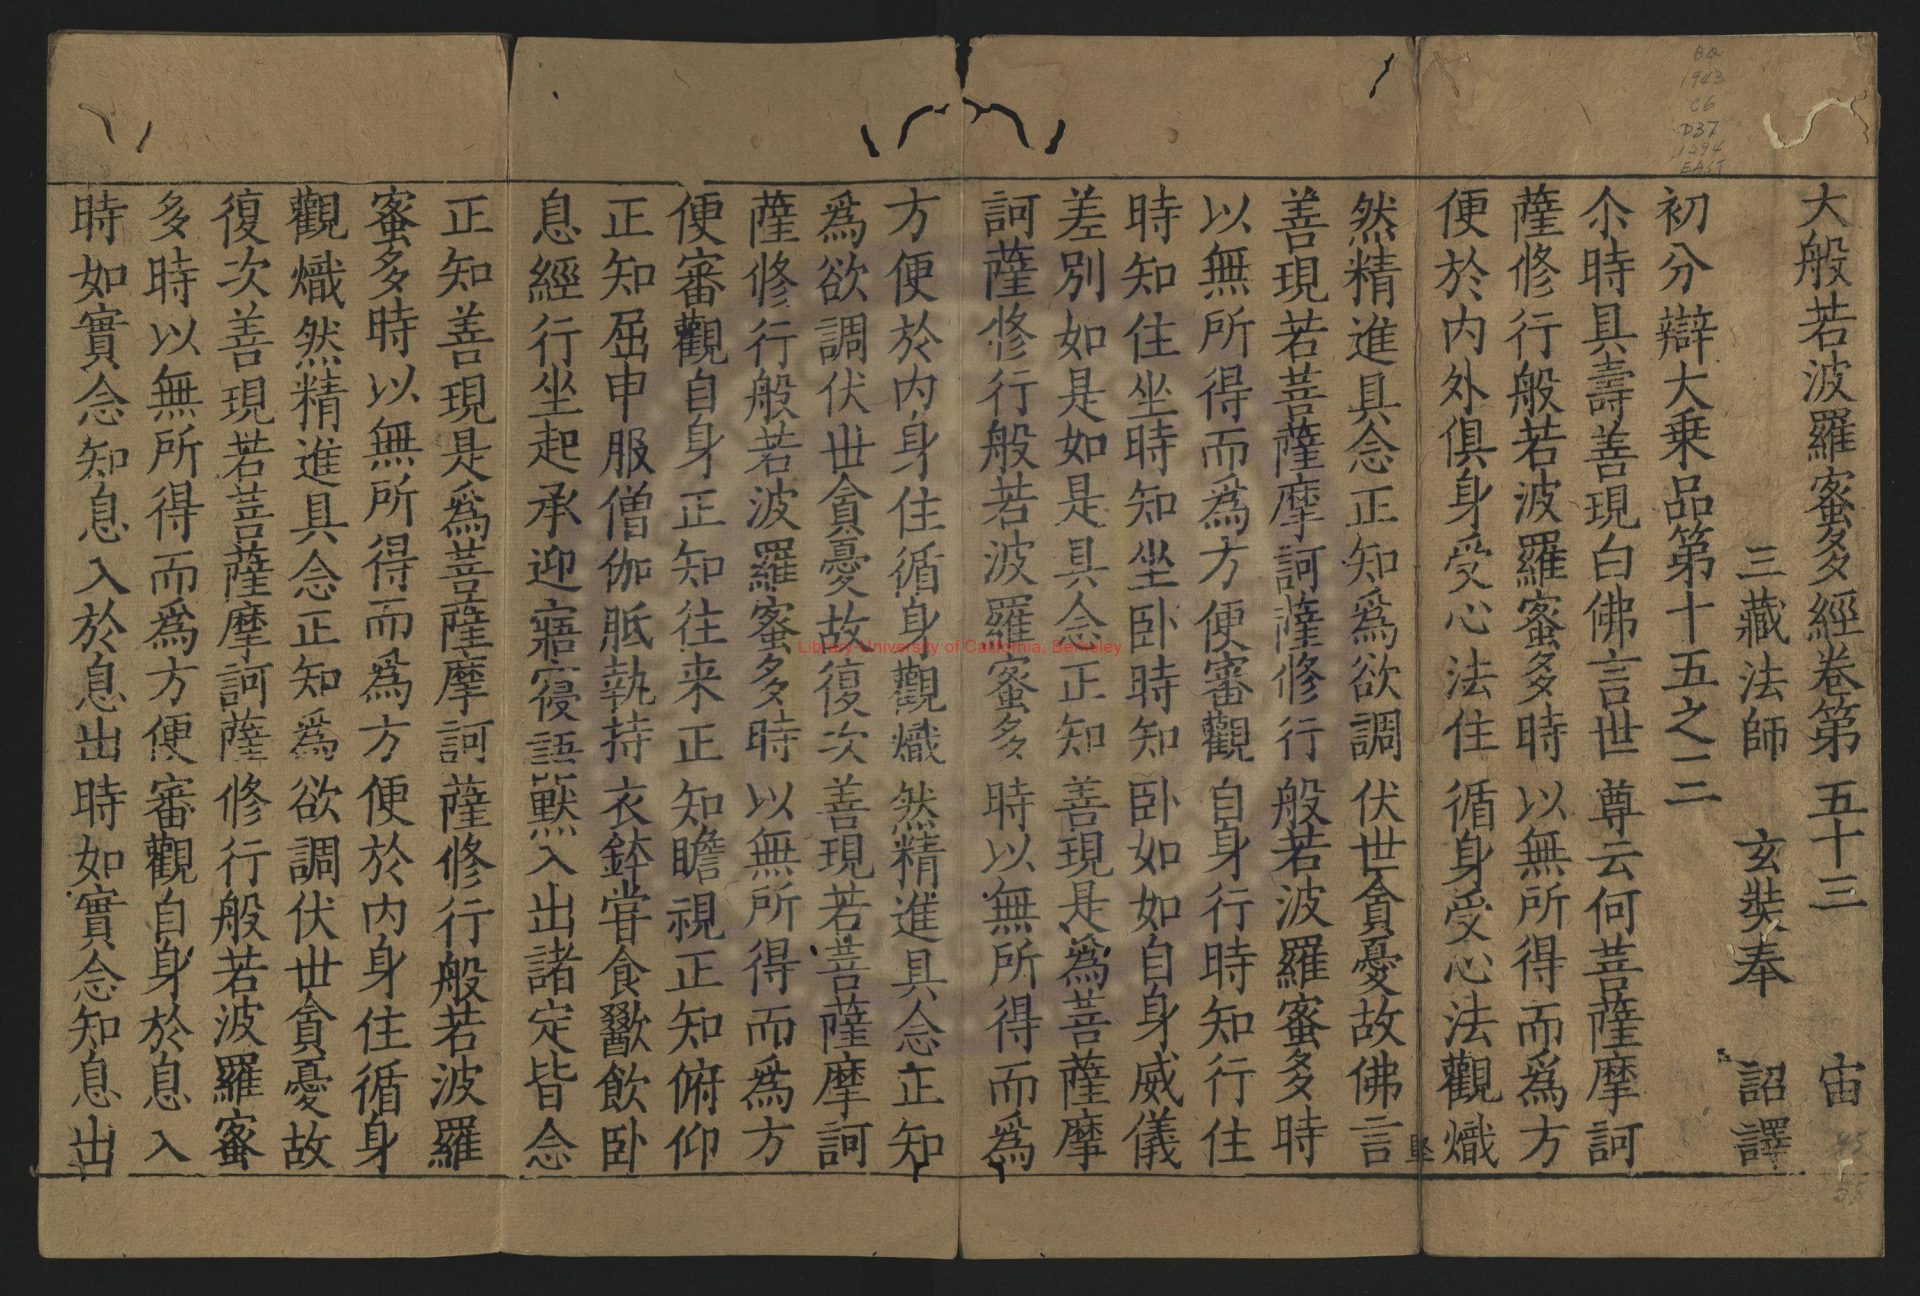 大般若波羅蜜多經卷第五十三 宙
三藏法師 玄奘奉 詔譯
初分辯大乘品第十五之三
尒時具壽善現白佛言世尊云何菩薩摩訶
薩修行般若波羅蜜多時以無所得而爲方
便於內外俱身受心法住循身受心法觀熾
然精進具念正知爲欲調伏世貪憂故佛言
善現若菩薩摩訶薩修行般若波羅蜜多時
以無所得而爲方便審觀自身行時知行住
時知住坐時知坐卧時知卧如如自身威儀
差別如是如是具念正知善現是爲菩薩摩
訶薩修行般若波羅蜜多時以無所得而爲
方便於內身住循身觀熾然精進具念正知
爲欲調伏世貪憂故復次善現若菩薩摩訶
薩修行般若波羅蜜多時以無所得而爲方
便審觀自身正知往来正知瞻視正知俯仰
正知屈申服僧伽胝執持衣鉢甞食歠飲卧
息經行坐起承迎寤寢語默入出諸定皆念
正知善現是爲菩薩摩訶薩修行般若波羅
蜜多時以無所得而爲方便於內身住循身
觀熾然精進具念正知爲欲調伏世貪憂故
復次善現若菩薩摩訶薩修行般若波羅蜜
多時以無所得而爲方便審觀自身於息入
時如實念知息入於息出時如實念知息出
BQ
1943
C6
P37
1294
EAST
Library-University of California, Berkeley